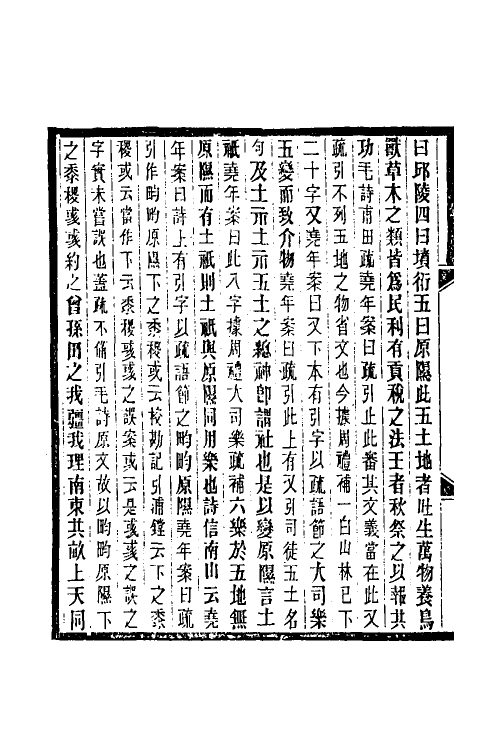 曰邱陵四曰墳衍五曰原隰此五土地者吐生萬物養鳥
獸草木之類皆爲民利有貢稅之法王者秋祭之以報其
功毛詩甫田疏堯年案曰疏引止此審其文義當在此又
疏引不列五地之物省文也今據周禮補一曰山林已下
二十字又堯年案曰又下本有引字以疏語節之大司樂
五變而致介物堯年案曰疏引此上有又引司徒五土名
句及土示土示五土之總神卽謂社也是以變原隰言土
祇堯年案曰此八字據周禮大司樂疏補六樂於五地無
原隰而有土祇則土祇與原隰同用樂也詩信南山云堯
年案曰詩上有引字以疏語節之畇畇原隰堯年案曰疏
引作畇畇原隰下之黍稷或云校勘記引浦鏜云下之黍
稷或云當作下云黍稷彧彧之誤案或云是彧彧之誤之
字實未嘗誤也蓋疏不備引毛詩原文故以畇畇原隰下
之黍稷彧彧約之曾孫田之我疆我理南東其畝上天同